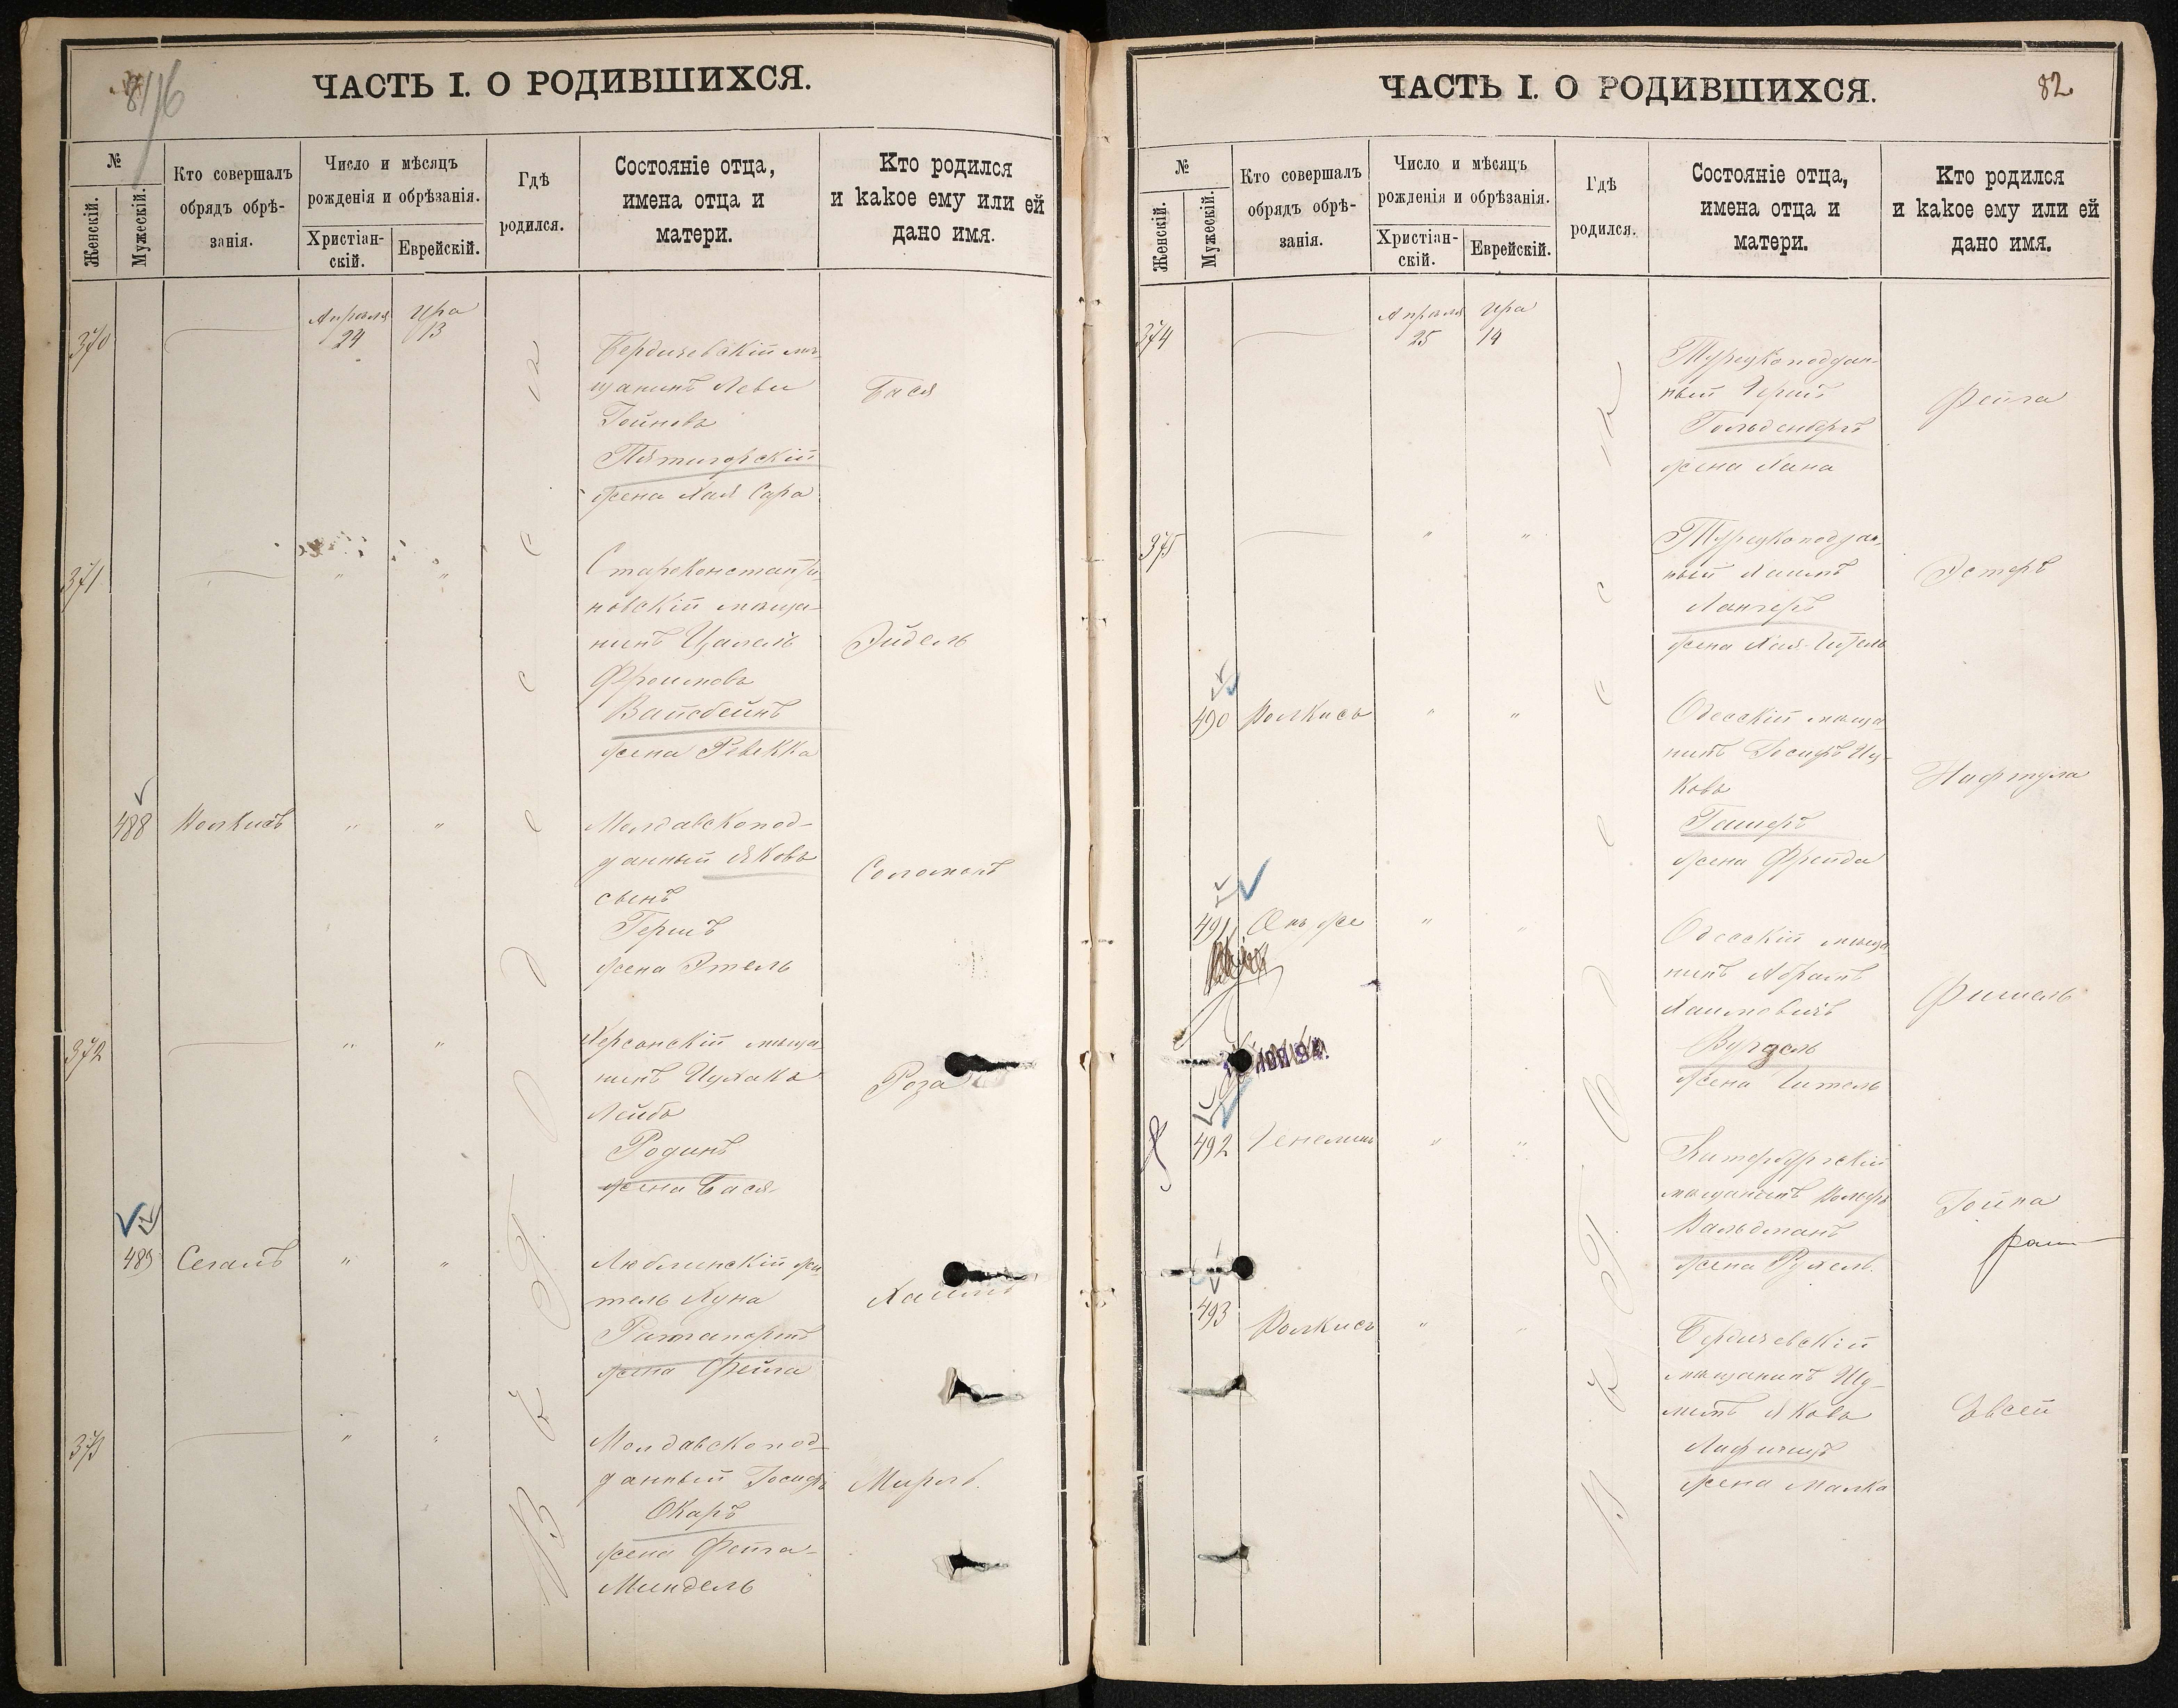 ЧАСТЬ I. О РОДИВШИХСЯ.
№
Женскій.
Мужескій.
Кто совершалъ
обрядъ обрѣ-
занія.
Число и мѣсяцъ
рожденія и обрѣзанія.
Христіан-
скій.
Еврейскій.
Гдѣ
родился.
Состояніе отца,
имена отца и
матери.
Кто родился
и какое ему или ей
дано имя.
въ г. Одессѣ
370
Апрѣля
24
Ира
13
Бердичевскій мѣ-
щанинъ Леви
Гойновъ
Пятигорскій
жена Хая Сара
Бася
371
" "
Староконстанти-
новскій мѣща-
нинъ Цалель
Фроимовъ
Вайсбейнъ
жена Ревекка
Эйдель
488
Волкисъ
" "
Молдавскопод-
данный Яковъ
сынъ
Гершъ
жена Этель
Соломонъ
372
" "
Херсонскій мѣща-
нинъ Ицхакъ
Лейбъ
Родинъ
жена Бася
Роза
489
Сегалъ
" "
Люблинскій жи-
тель Нуна
Рапапортъ
жена Фейга
Хаимъ
373
" "
Молдавскопод-
данный Іосифъ
Окаръ
жена Фейга-
Миндель
Мирль
ЧАСТЬ I. О РОДИВШИХСЯ.
82
№
Женскій.
Мужескій.
Кто совершалъ
обрядъ обрѣ-
занія.
Число и мѣсяцъ
рожденія и обрѣзанія.
Христіан-
скій.
Еврейскій.
Гдѣ
родился.
Состояніе отца,
имена отца и
матери.
Кто родился
и какое ему или ей
дано имя.
въ г. Одессѣ
374
Апрѣля
25
Ира
14
Турецкоподдан-
ный Гершъ
Гольденбергъ
жена Хана
Фейга
375
" "
Турецкоподдан-
ный Хаимъ
Лангеръ
жена Хая-Гитель
Эстеръ
490
Волкисъ
" "
Одесскій мѣща-
нинъ Іосифъ Иц-
ковъ
Гашеръ
жена Фрейда
Нафтула
491
Онъ же
" "
Одесскій мѣща-
нинъ Абрамъ
Хаимовичъ
жена Гитель
Фишель
492
" "
мѣщанинъ
Вальдманъ
жена Рухель
Іойна
493
Волкисъ
" "
Бердичевскій
мѣщанинъ Шу-
лимъ Яковъ
Лифшицъ
жена Малка
Евсей